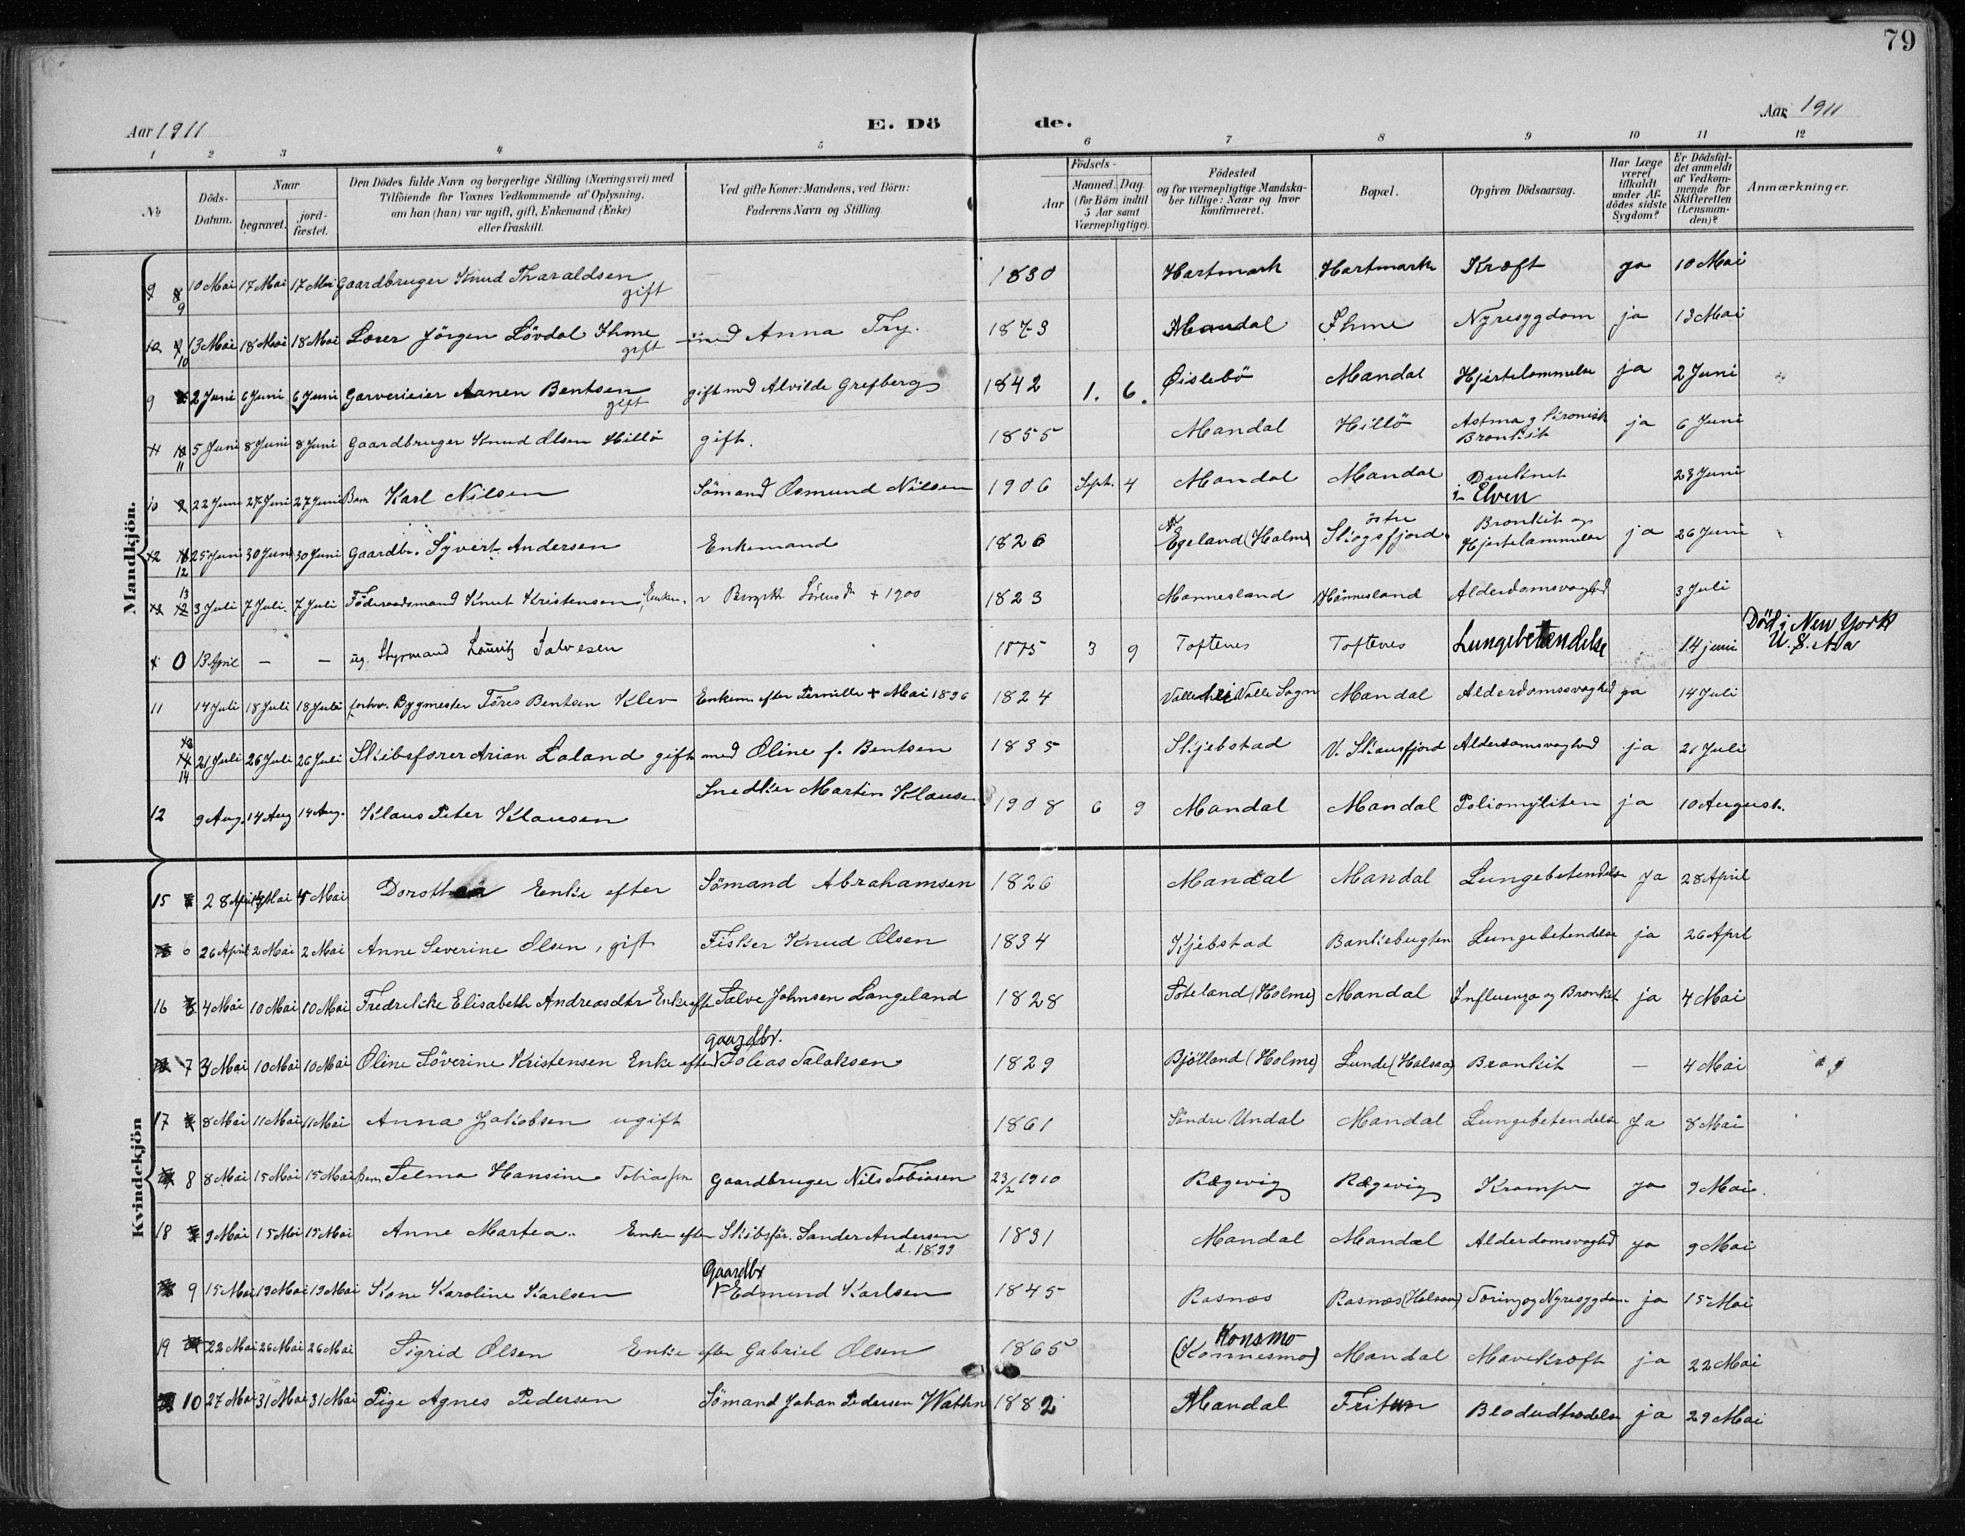 79
Aar 1911 E. Dö de. Aar 1911
1 2 3 4 5 6 7 8 9 10 11 12
No
Döds-Datum.
Naar
begravet.
jord-fæstet.
Den Dödes fulde Navn og borgerlige Stilling (Næringsvei) med
Tilföiende for Voxnes Vedkommende af Oplysning.
om han (hun) var ugift, gift, Enkemand (Enke)
eller fraskilt.
Ved gifte Koner: Mandens, ved Börn:
Faderens Navn og Stilling.
Födsels-
Aar
Maaned. Dag.
(for Börn indtil
5 Aar samt
Værnepligtige).
Födested
og for værnepligtige Mandska-
ber tillige: Naar og hvor
konfirmeret.
Bopæl.
Opgiven Dödsaarsag.
Har Læge
været
tilkaldt
under Af-
dödes sidste
Sygdom?
Er Dödsfal-
det anmeldt
af Vedkom-
mende for
Skifteretten
(Lensman-
den)?
Anmærkninger.
Mandkjön.
9 10 Mai 17 Mai 17 Mai Gaardbruger Knud Tharaldsen gift 1830 Hartmark Hartmark Kræft ja 10 Mai
10 13 Mai 18 Mai 18 Mai Lærer Jörgen Lövdal Ihme gift med Anna Try. 1873 Mandal Ihme Nyresygdom ja 13 Mai
9 2 Juni 6 Juni 6 Juni Garverieier Aanen Bentsen gift gift med Alvilde Grefberg 1842 1. 6. Öislebö Mandal Hjertelammelse ja 2 Juni
11 5 Juni 8 Juni 8 Juni Gaardbruger Knud Olsen Hillö gift. 1855 Mandal Hillö Astma og kronisk Bronkit ja 6 Juni
10 22 Juni 27 Juni 27 Juni Barn Karl Nilsen Sömand Osmund Nilsen 1906 Sept. 4 Mandal Mandal Druknet i Elven 23 Juni
12 25 Juni 30 Juni 30 Juni Gaardbr. Syvert Andersen Enkemand 1826 Egeland (Holme) östre Skogsfjord Bronkit og Hjertelammelse ja 26 Juni
13 3 Juli 7 Juli 7 Juli Föderaadsmand Knut Kristensen, Enkem. + 1900 1823 Mannesland Mannesland Alderdomssvaghed 3 Juli
0 13 April — — ug. Styrmand Louritz Salvesen 1875 3 9 Toftenes Toftenes Lungebetændelse 14 juni Död i New York U. S. Na
11 14 Juli 18 Juli 18 Juli forhv. Bygmester Töres Bentsen Klev Enkem. efter Pernille + Mai 1896 1824 Valle Sogn Mandal Alderdomssvaghed ja 14 Juli
14 21 Juli 26 Juli 26 Juli Skibsförer Arian Laland gift med Oline f. Bentsen 1835 Skjebstad V. Skausfjord Alderdomssvaghed ja 21 Juli
12 9 Aug. 14 Aug 14 Aug. Klaus Peter Klausen Snedker Martin Klausen 1908 6 9 Mandal Mandal Poliomyliten ja 10 August.
Kvindekjön
15 28 April 4 Mai 4 Mai Dorothea Enke efter Sömand Abrahamsen 1826 Mandal Mandal Lungebetendelse Ja 28 April
6 26 April 2 Mai 2 Mai Anne Severine Olsen, gift Fisker Knud Olsen 1834 Kjebstad Bankebugten Lungebetendelse ja 26 April
16 4 Mai 10 Mai 10 Mai Fredrikke Elisabeth Andreasdtr Enke eft Salve Johnsen Langeland 1828 Söteland (Holme) Mandal Influenza og Bronkit ja 4 Mai
7 3 Mai 10 Mai 10 Mai Oline Söverine Kristensen Enke efter gaardbr. Tobias Salaksen 1829 Bjölland (Holme) Lunde (Halsaa) Bronkit — 4 Mai
17 8 Mai 11 Mai 11 Mai Anna Jakobsen ugift 1861 Söndre Undal Mandal Lungebetendelse Ja 8 Mai
8 8 Mai 15 Mai 15 Mai Barn Selma Hansine Tobiassen gaardbruger Nils Tobiasen 23/2 1910 Rægevig Rægevig Krampe ja 9 Mai.
18 9 Mai 15 Mai 15 Mai Anne Martea Enke efter Skibsför. Sander Andersen d. 1899 1831 Mandal Mandal Alderdomsvaghd ja 9 Mai
9 15 Mai 19 Mai 19 Mai Kone Karoline Karlsen Gaardbr Edmund Karlsen 1845 Rosnæs Rosnæs (Halsaa) Tæring og Nyresygdom ja 15 Mai
19 22 Mai 26 Mai 26 Mai Sigrid Olsen Enke efter Gabriel Olsen 1865 Konsmo (Konnesmo) Mandal Mavekræft ja 22 Mai
10 27 Mai 31 Mai 31 Mai Pige Agnes Pedersen Sömand Johan Pedersen 1882 Mandal Blodudtrædelse ja 29 Mai